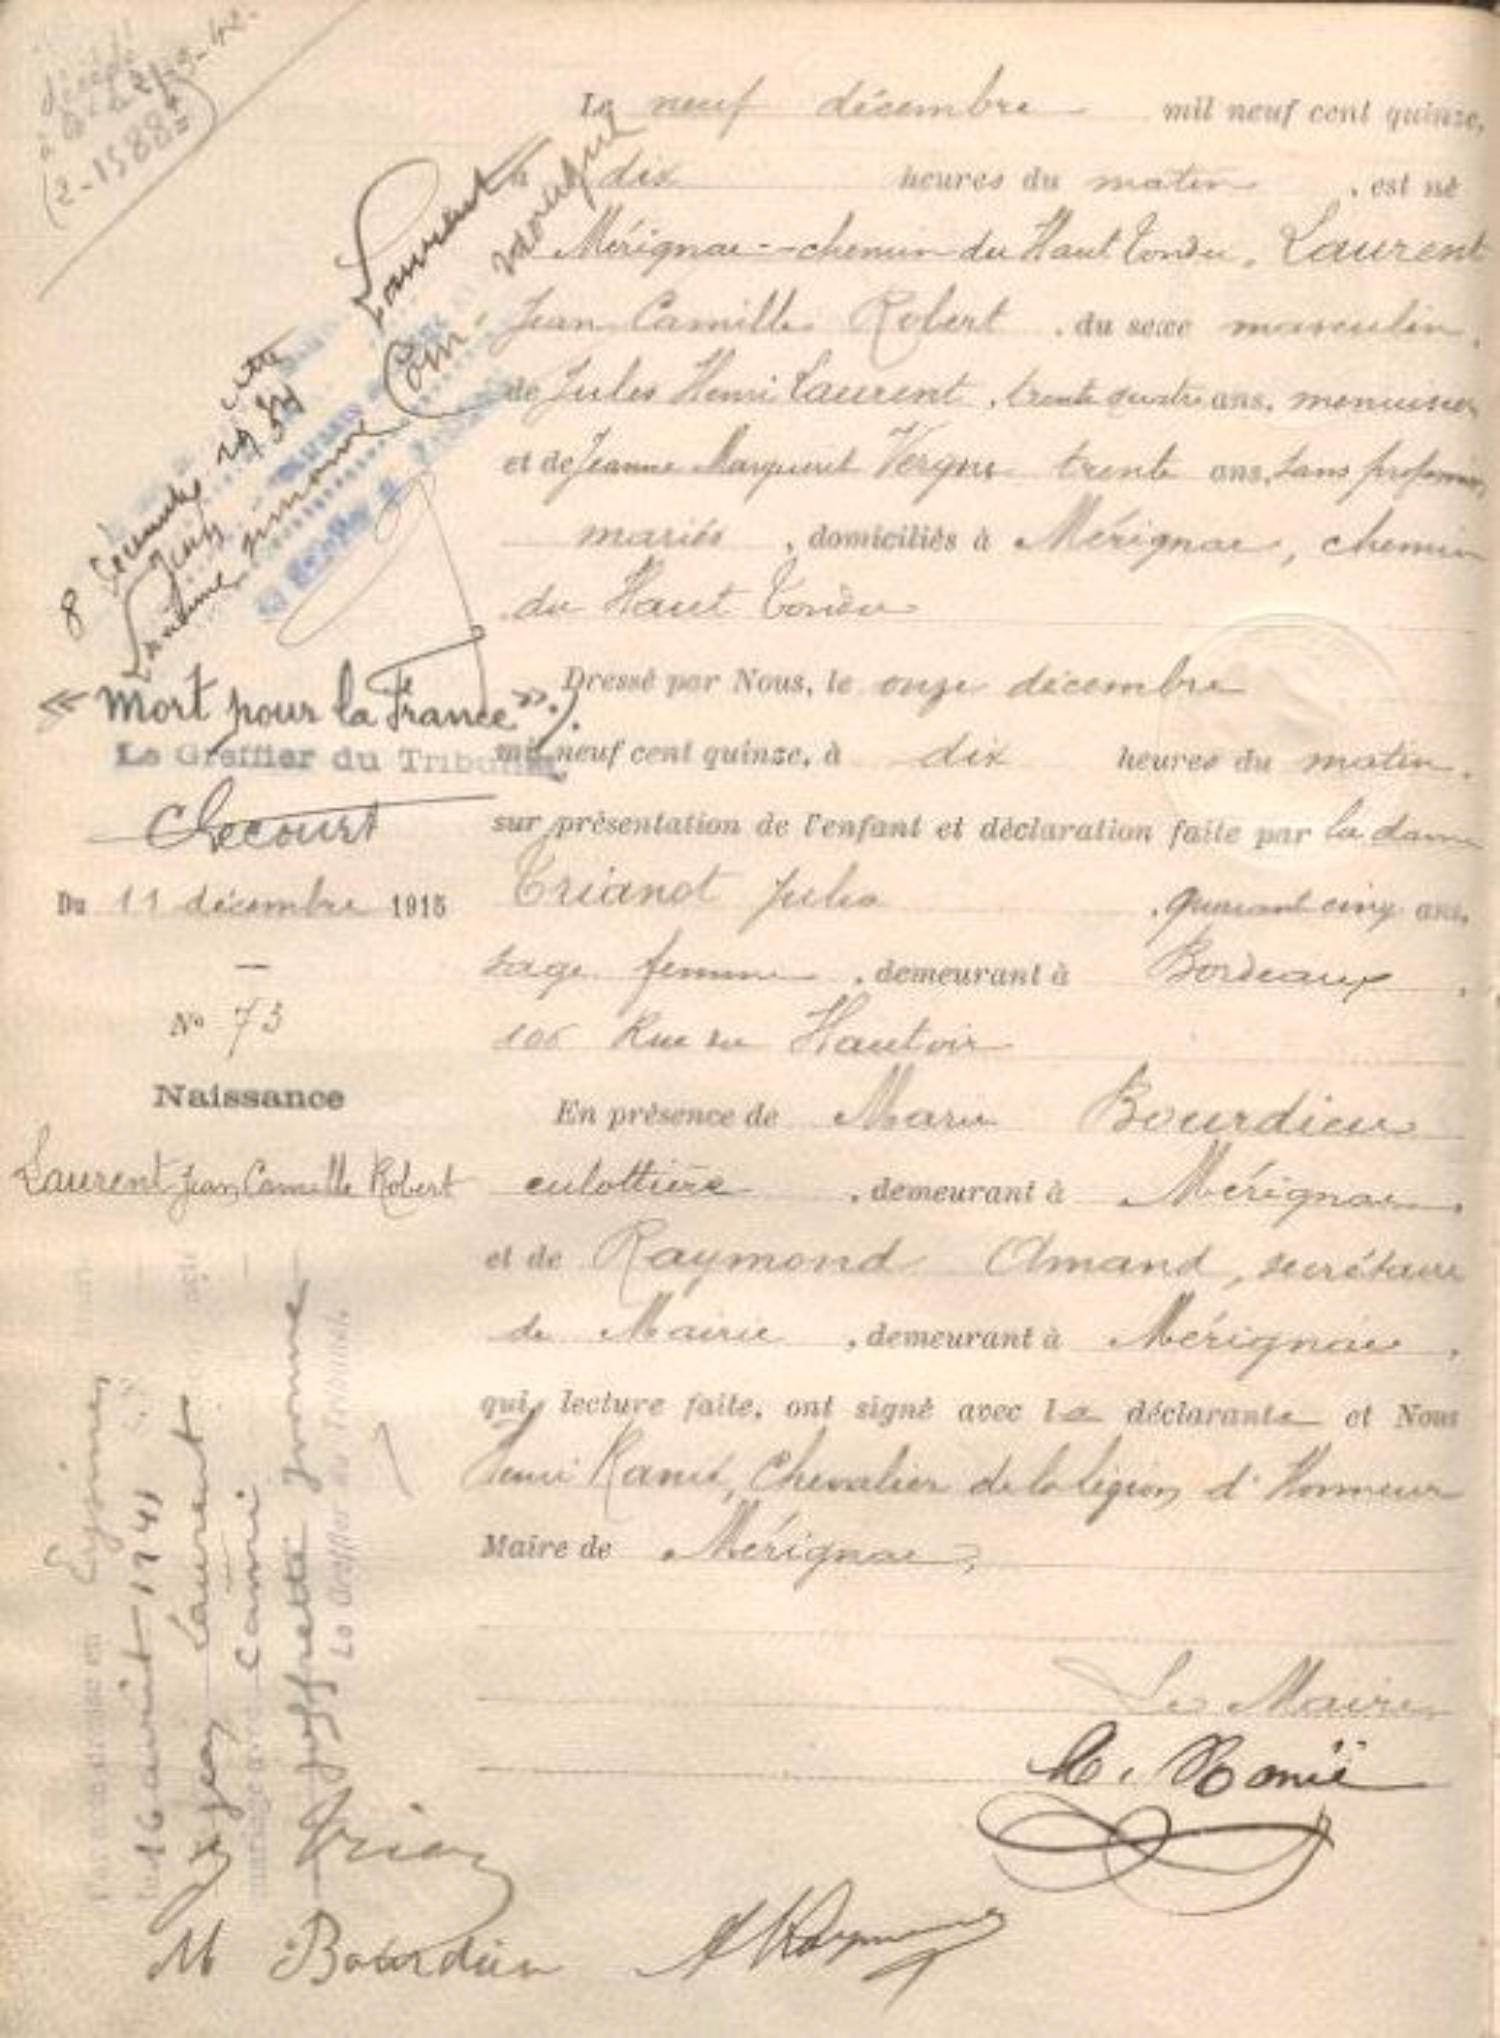 décédé
à
21-9-42.
(2-1588)
Le neuf décembre mil neuf cent quinze,
à dix heures du matin, est né
à Mérignac -- chemin du Haut Tondu, Laurent
Jean Camille Robert, du sexe masculin,
de Jules Henri Laurent, trente quatre ans, menuisier
et de Jeanne Marguerit Vergne trente ans, sans profession,
mariés, domiciliés à Mérignac, chemin
du Haut Tondu
Dressé par Nous, le onze décembre
mil neuf cent quinze, à dix heures du matin,
sur présentation de l'enfant et déclaration faite par la dame
Trianot Julia, quarant cinq ans,
sage femme, demeurant à Bordeaux,
106 Rue du Hautoir
En présence de Marie Bourdieu
culottière, demeurant à Mérignac,
et de Raymond Amand, secrétaire
de Mairie, demeurant à Mérignac,
qui, lecture faite, ont signé avec la déclarante et Nous
Henri Ranié, Chevalier de la légion d'Honneur
Maire de Mérignac,
Le Maire
H. Ranié
8 décembre 1937
Jean
Laurent
« Mort pour la France ».
Le Greffier du Tribunal
Lecourt
Du 11 décembre 1915
N° 73
Naissance
Laurent Jean Camille Robert
Eysines
le 16 avril 1941
Laurent
mariage avec
Joffrette Yvonne
Le Greffier du Tribunal
M Bourdieu
A Raymond